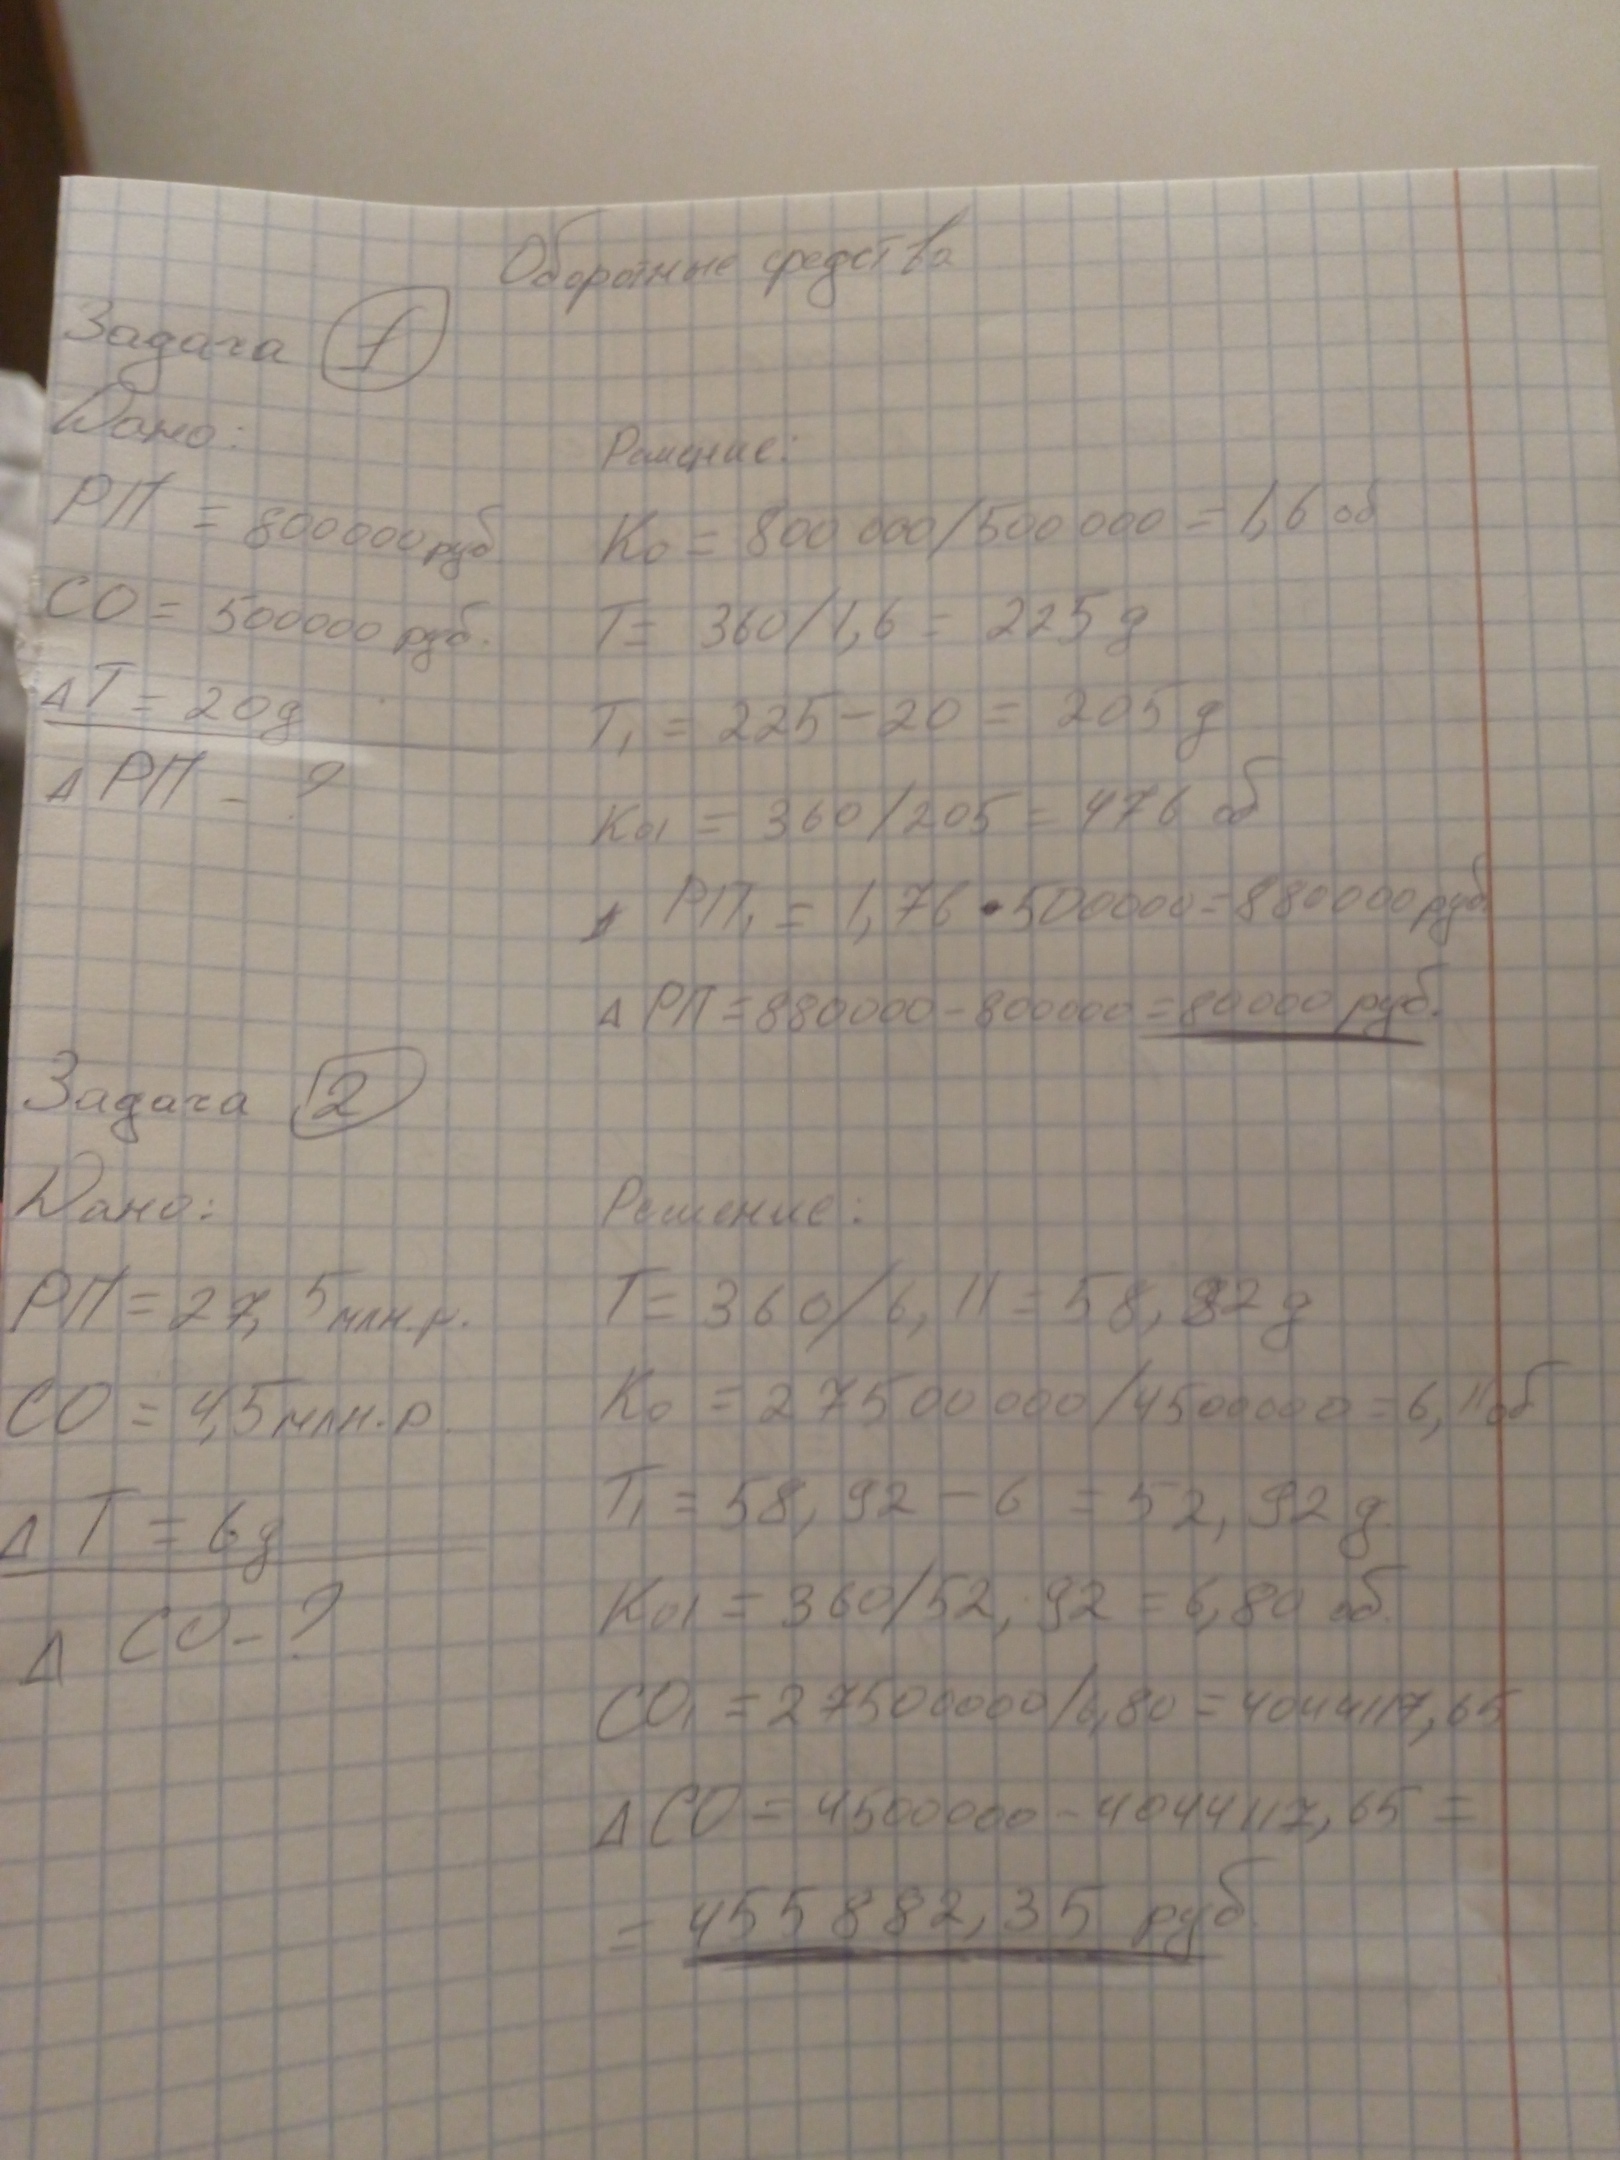 Оборотные средства
Задача 1
Дано:
РП = 800000 руб
СО = 500000 руб.
Δ Т = 20 д
Δ РП - ?
Решение:
Ко = 800 000/500 000 = 1,6 об
Т = 360/1,6 = 225 д
Т1 = 225 - 20 = 205 д
Ко1 = 360/205 = 176 об
РП1 = 1,76 • 500000 = 880000 руб
Δ РП = 880000 - 800000 = 80000 руб.
Задача 2
Дано:
РП = 27,5 млн.р.
СО = 4,5 млн.р.
Δ Т = 6 д
Δ СО - ?
Решение:
Т = 360/6,11 = 58,92 д
Ко = 27500000/4500000 = 6,11 об
Т1 = 58,92 - 6 = 52,92 д.
Ко1 = 360/52,92 = 6,80 об.
СО1 = 27500000/6,80 = 4044117,65
Δ СО = 4500000 - 4044117,65 =
= 455882,35 руб.